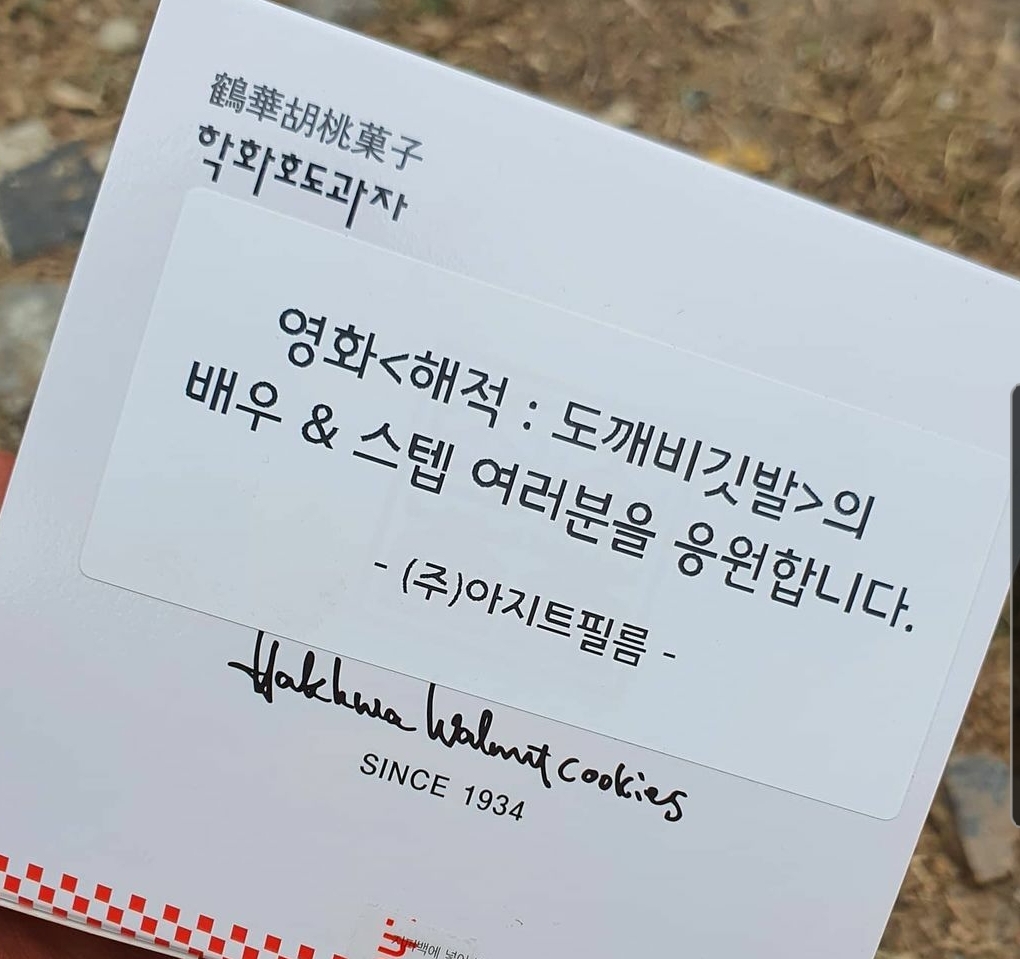 鶴華胡桃菓子
학화호도과자
영화<해적 : 도깨비깃발>의
배우 & 스텝 여러분을 응원합니다.
- (주)아지트필름 -
Hakhwa Walnut cookies
SINCE 1934